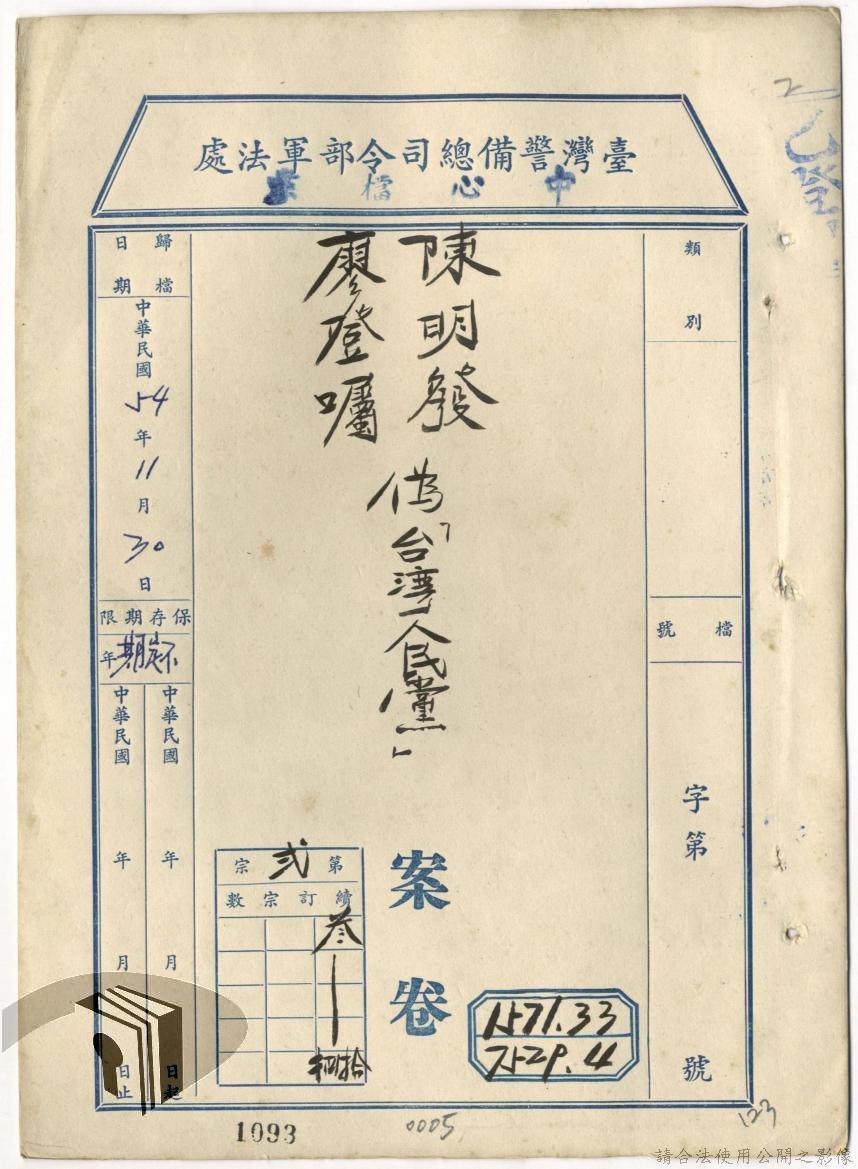 臺灣警備總司令部軍法處
中心檔案
類別
檔號
字第
號
陳明發
廖登囑
偽「台灣人民黨」
案卷
第弍宗
續訂宗數
叁
1571.33
7529.4
歸檔日期
中華民國54年11月30日
保存期限
年
中華民國 年 月 日起
中華民國 年 月 日止
1093
0005
123
請合法使用公開之影像